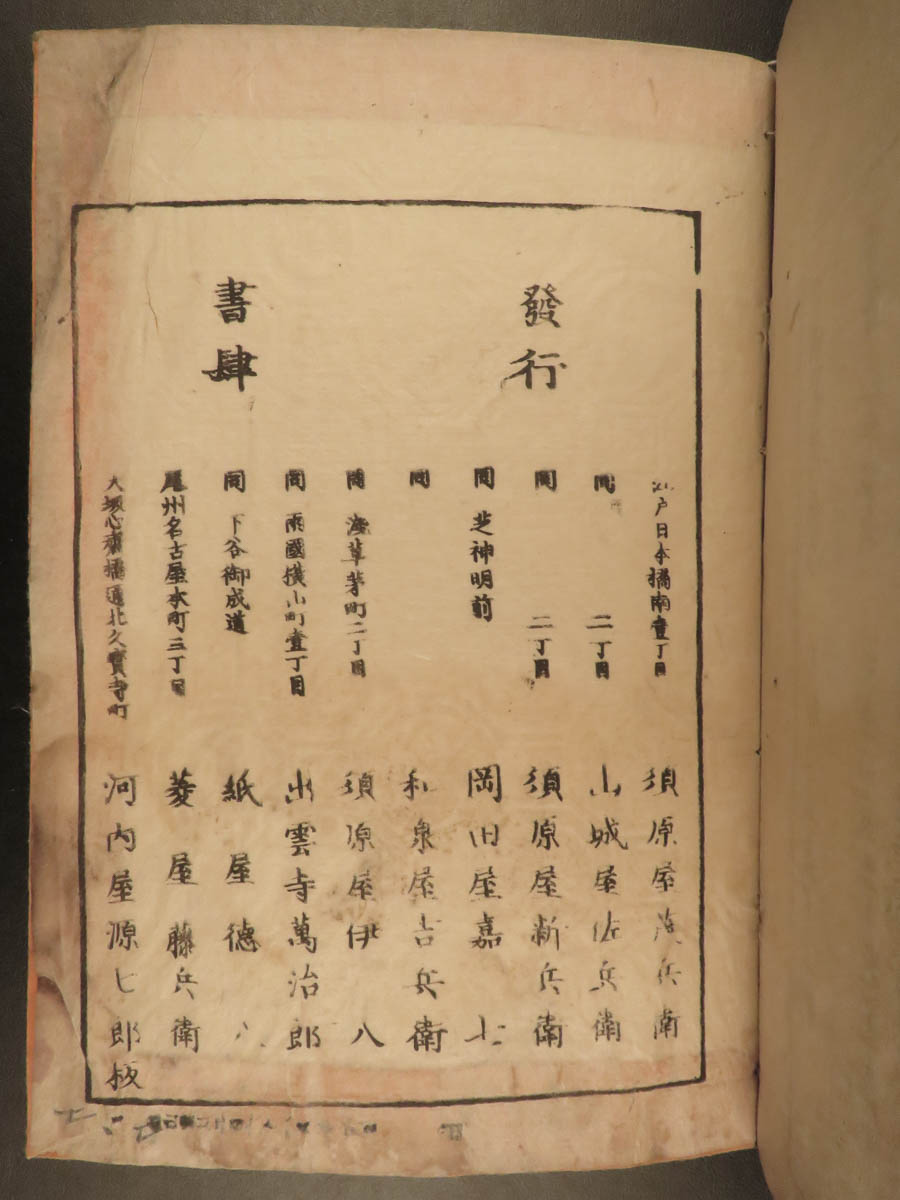 發行
江戸日本橋南壹丁目 須原屋茂兵衛
同 二丁目 山城屋佐兵衛
同 二丁目 須原屋新兵衛
同 芝神明前 岡田屋嘉七
同 和泉屋吉兵衛
同 淺草茅町二丁目 須原屋伊八
同 兩國横山町壹丁目 出雲寺萬治郎
同 下谷御成道 紙屋徳八
書肆
尾州名古屋本町三丁目 菱屋藤兵衛
大坂心齋橋通北久寶寺町 河内屋源七郎板